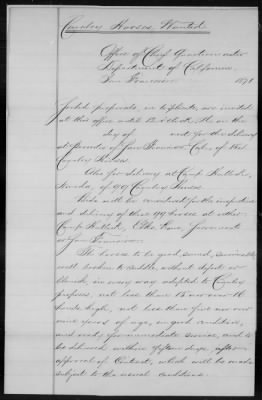 Cavalry Horses Wanted
Office of Chief Quartermaster
Department of California
San Francisco 1878
Sealed proposals, in triplicate, are invited
at this office until 12 o'clock M. on the
day of next for the delivery
at Presidio of San Francisco Cal., of
Cavalry Horses.
Also for delivery at Camp Halleck,
Nevada, of 99 Cavalry Horses
Bids will be considered for the inspection
and delivery of these 99 horses at either
Camp Halleck, Elko, Reno, Sacramento
or San Francisco.
The horses to be good, sound, serviceable,
well broken to saddle, without defect or
blemish, in every way adapted to Cavalry
purposes, not less than 15 nor over 16
hands high, not less than five nor over
nine years of age, in good condition,
and ready for immediate service, and to
be delivered within fifteen days after
approval of Contract, which will be made
subject to the usual conditions.